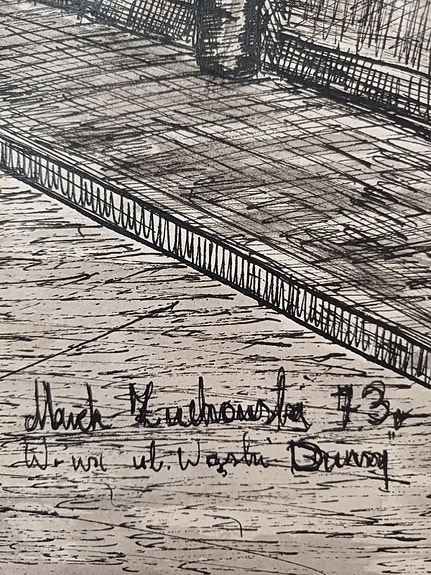 Marek Żuchowski 73r
W-wa ul. Wąski Dunaj"